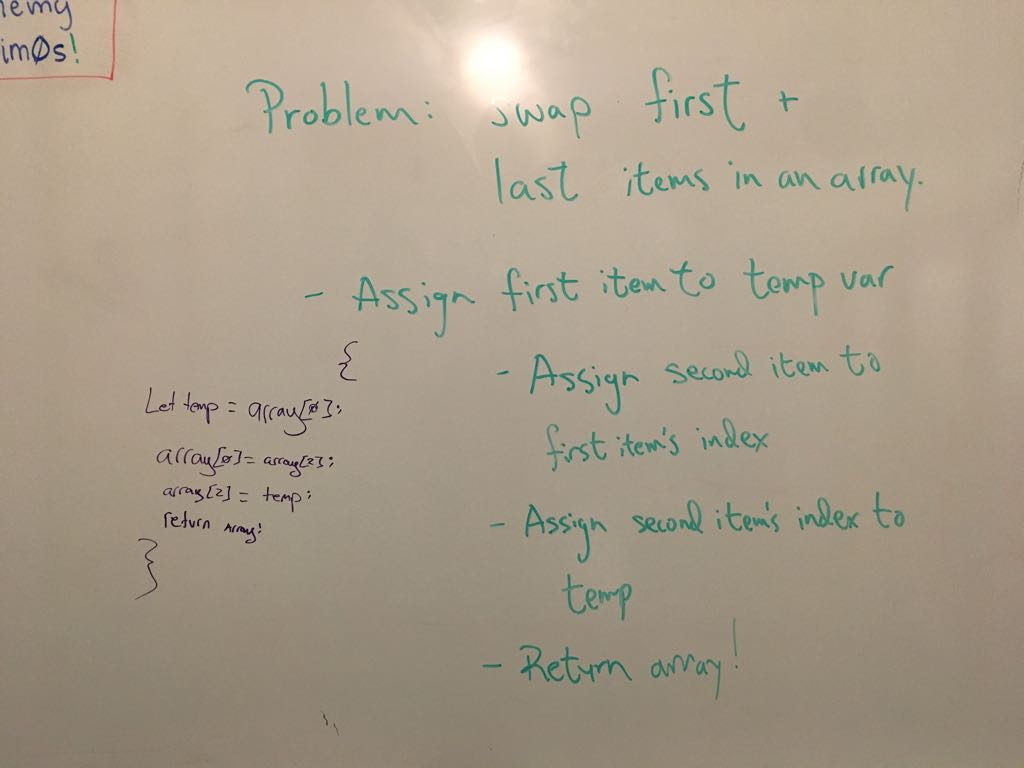 im0s!
Problem: swap first +
last items in an array.
- Assign first item to temp var
- Assign second item to
first item's index
- Assign second item's index to
temp
- Return array!
{
Let temp = array[0];
array[0] = array[2];
array[2] = temp;
return Array;
}